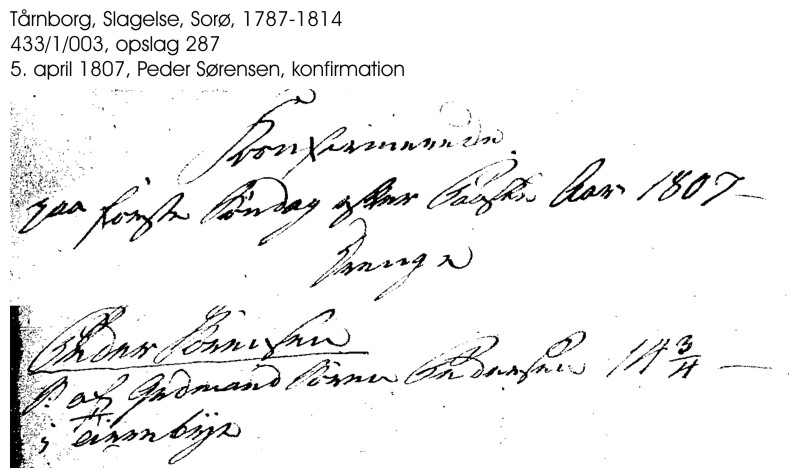 Tårnborg, Slagelse, Sorø, 1787-1814
433/1/003, opslag 287
5. april 1807, Peder Sørensen, konfirmation
Konfirmerede
paa første Søndag efter Paaske Aar 1807
Drenge
Peder Sørensen
S: af Grdmand Søren Pedersen 14 3/4
i